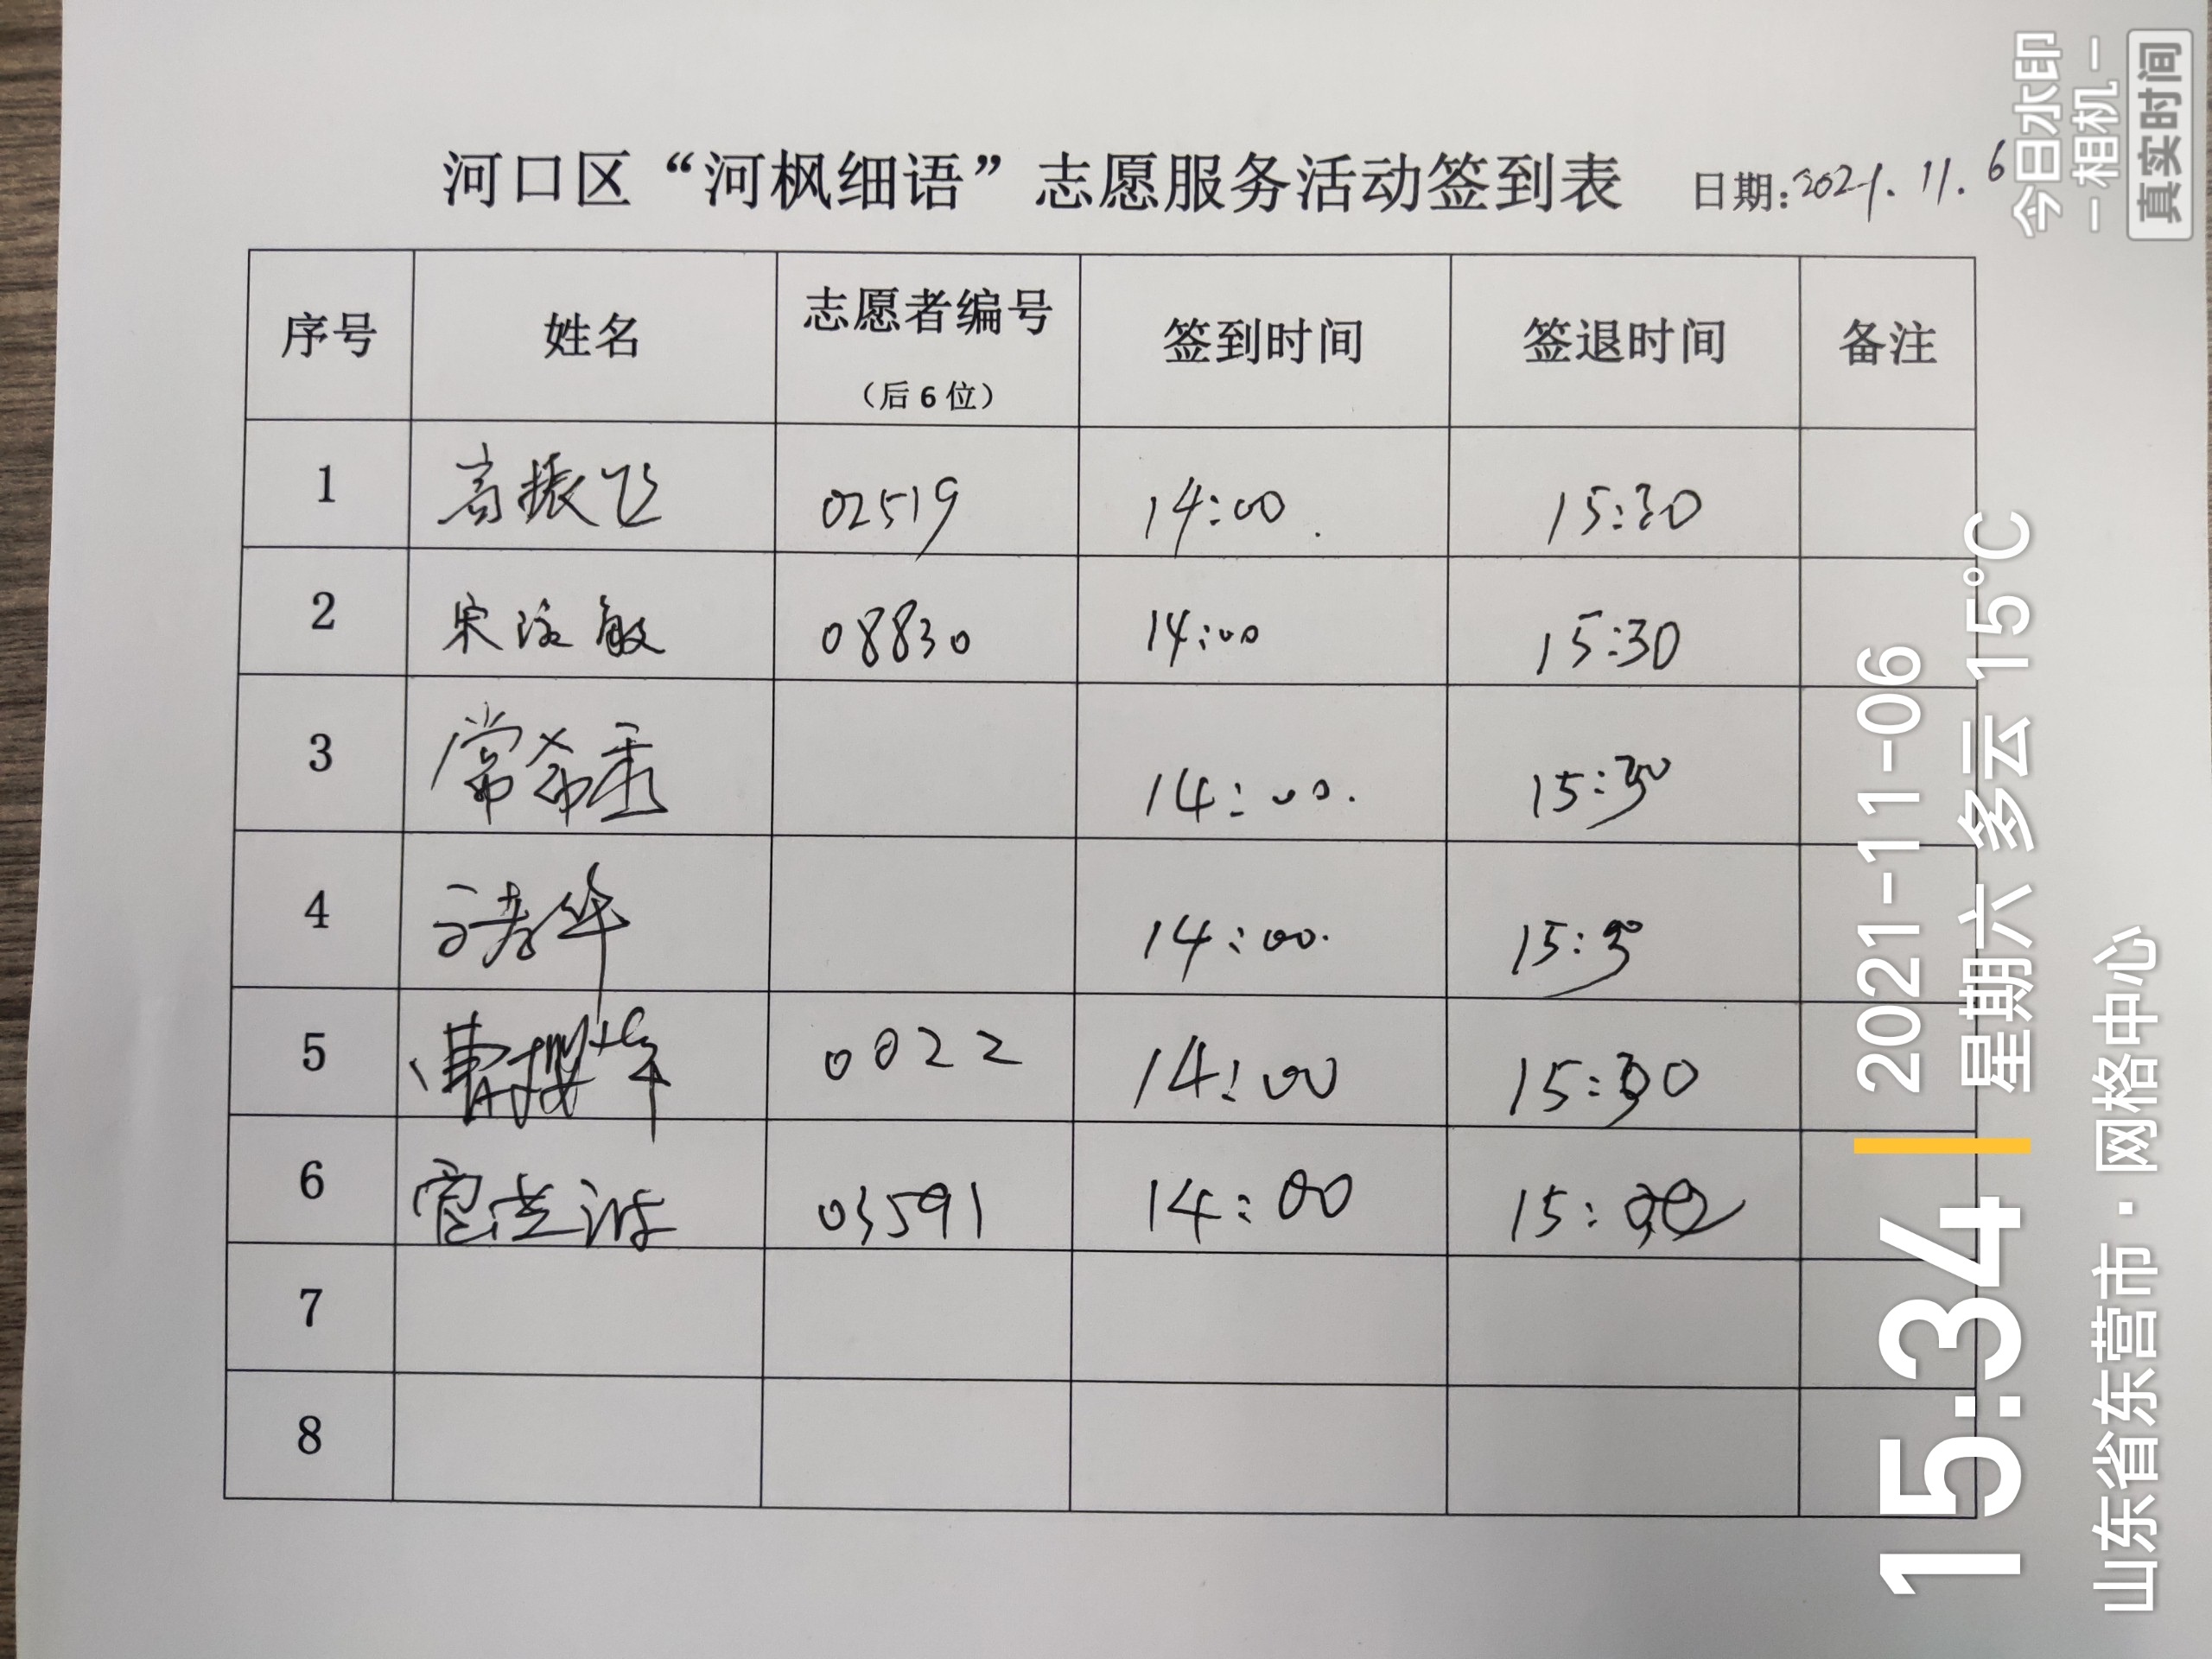 河口区“河枫细语”志愿服务活动签到表 日期:2021.11.6
序号 姓名 志愿者编号（后6位） 签到时间 签退时间 备注
1 高振飞 02519 14:00 15:30
2 08830 14:00 15:30
3 常希 14:00 15:30
4 14:00 15:30
5 曹 0022 14:00 15:30
6 03591 14:00 15:
7
8
今日水印
-相机-
真实时间
15:34
2021-11-06
星期六 多云 15℃
山东省东营市·网格中心